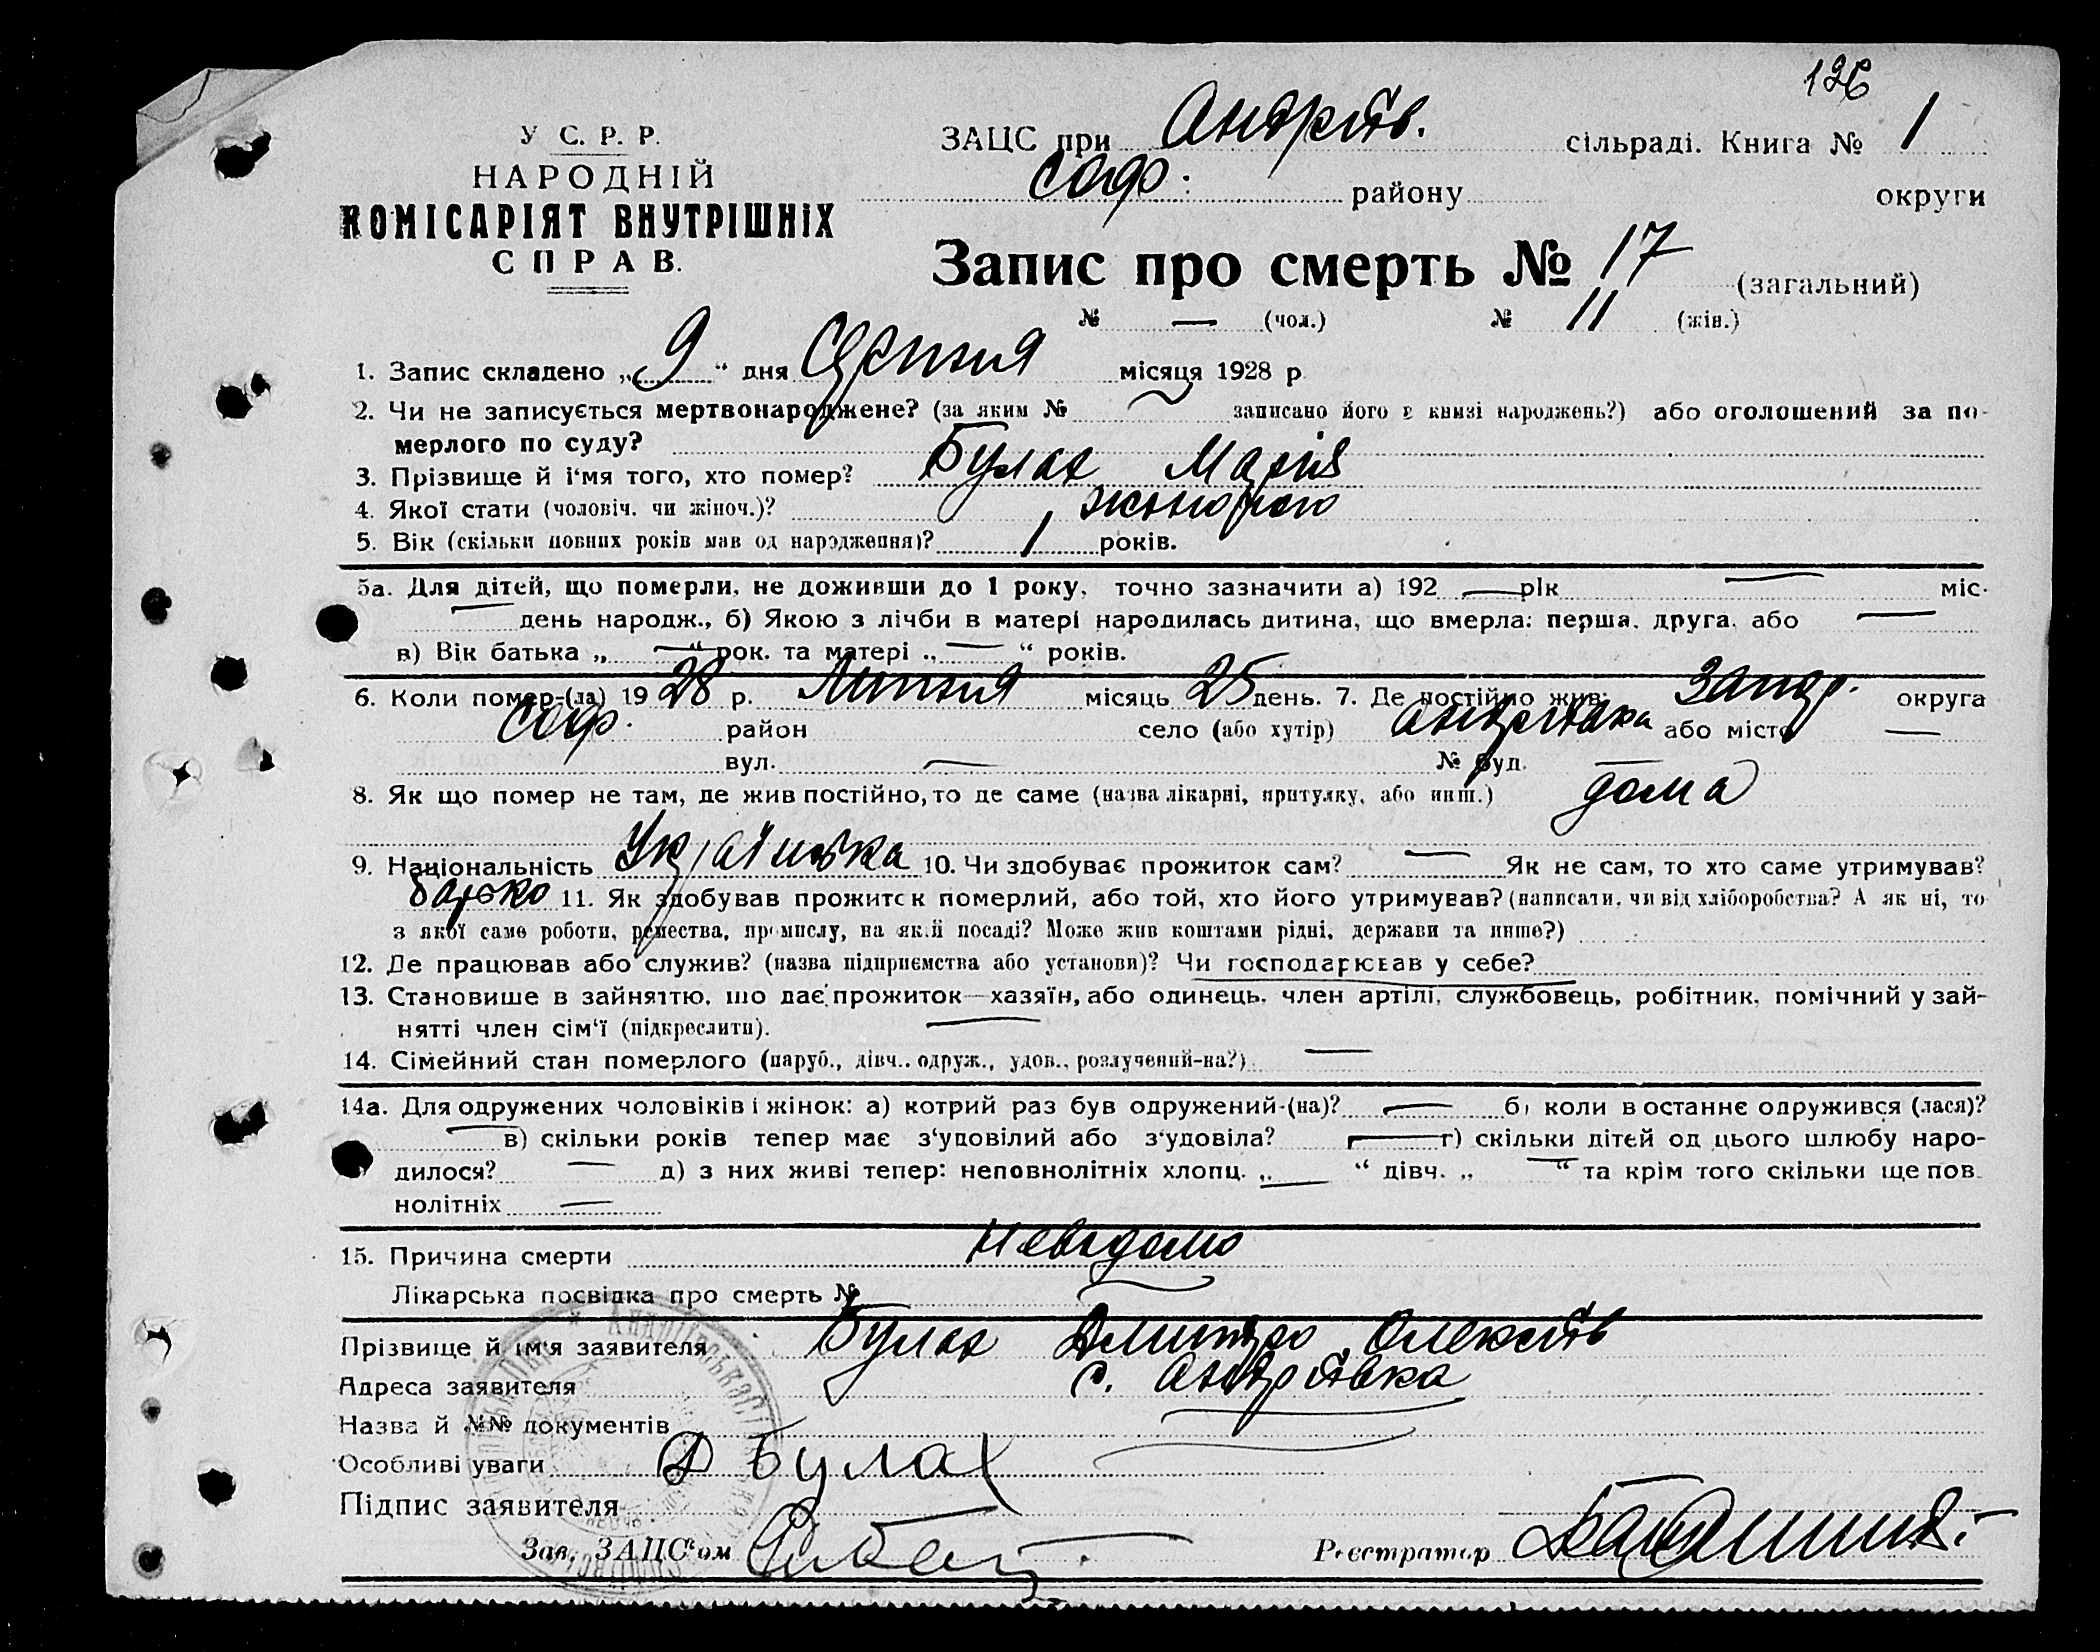 126
У С. Р. Р.
НАРОДНІЙ
КОМІСАРІЯТ ВНУТРІШНІХ
СПРАВ.
ЗАЦС при Андріїв. сільраді. Книга № 1
Соф. району округи
Запис про смерть № 17 (загальний)
№ — (чол.) № 11 (жін.)
1. Запис складено „ 9 “ дня Серпня місяця 1928 р
2. Чи не записується мертвонароджене? (за яким № записано його в книзі народжень?) або оголошений за по-
мерлого по суду?
3. Прізвище й і‘мя того, хто помер? Булах Марія
4. Якої стати (чоловіч. чи жіноч.)? жіночого
5. Вік (скільки повних років мав од народження)? 1 років.
5а. Для дітей, що померли, не доживши до 1 року, точно зазначити а) 192 — рік — міс.
— день народж., б) Якою з лічби в матері народилась дитина, що вмерла: перша, друга, або —
в) Вік батька „ — “ рок. та матері „ — “ років.
6. Коли помер-(ла) 19 28 р. Липня місяць 25 день. 7. Де постійно жив: Запор. округа
Соф. район село (або хутір) Андріївка або місто —
вул. — № буд. —
8. Як що помер не там, де жив постійно, то де саме (назва лікарні, притулку, або инш.) дома
9. Національність Українка 10. Чи здобуває прожиток сам? — Як не сам, то хто саме утримував?
батько 11. Як здобував прожиток померлий, або той, хто його утримував? (написати, чи від хліборобства? А як ні, то
з якої саме роботи, ремества, промислу, на якій посаді? Може жив коштами рідні, держави та инше?)
12. Де працював або служив? (назва підприємства або установи)? Чи господарював у себе?
13. Становище в зайняттю, що дає прожиток—хазяїн, або одинець, член артілі, службовець, робітник, помічний у зай-
нятті член сім‘ї (підкреслити). —
14. Сімейний стан померлого (паруб., дівч., одруж., удов., розлучений-на?). —
14а. Для одружених чоловіків і жінок: а) котрий раз був одружений-(на)? — б) коли в останнє одружився (лася)?
— в) скільки років тепер має з‘уповілий або з‘удовіла? — г) скільки дітей од цього шлюбу наро-
дилося? — д) з них живі тепер: неповнолітніх хлопц. „ — “ дівч. „ — “ та крім того скільки ще пов-
нолітніх —
15. Причина смерти невідомо
Лікарська посвідка про смерть №
Прізвище й ім‘я заявителя Булах Дмитро Олексіїв
Адреса заявителя с. Андріївка
Назва й №№ документів
Особливі уваги
Підпис заявителя Д Булах
Зав. ЗАЦС‘ом
Реєстратор